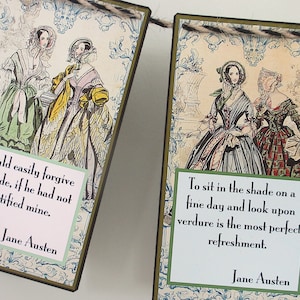 ld easily forgive
de, if he had not
tified mine.
Jane Austen
To sit in the shade on a
fine day and look upon
verdure is the most perfect
refreshment.
Jane Austen